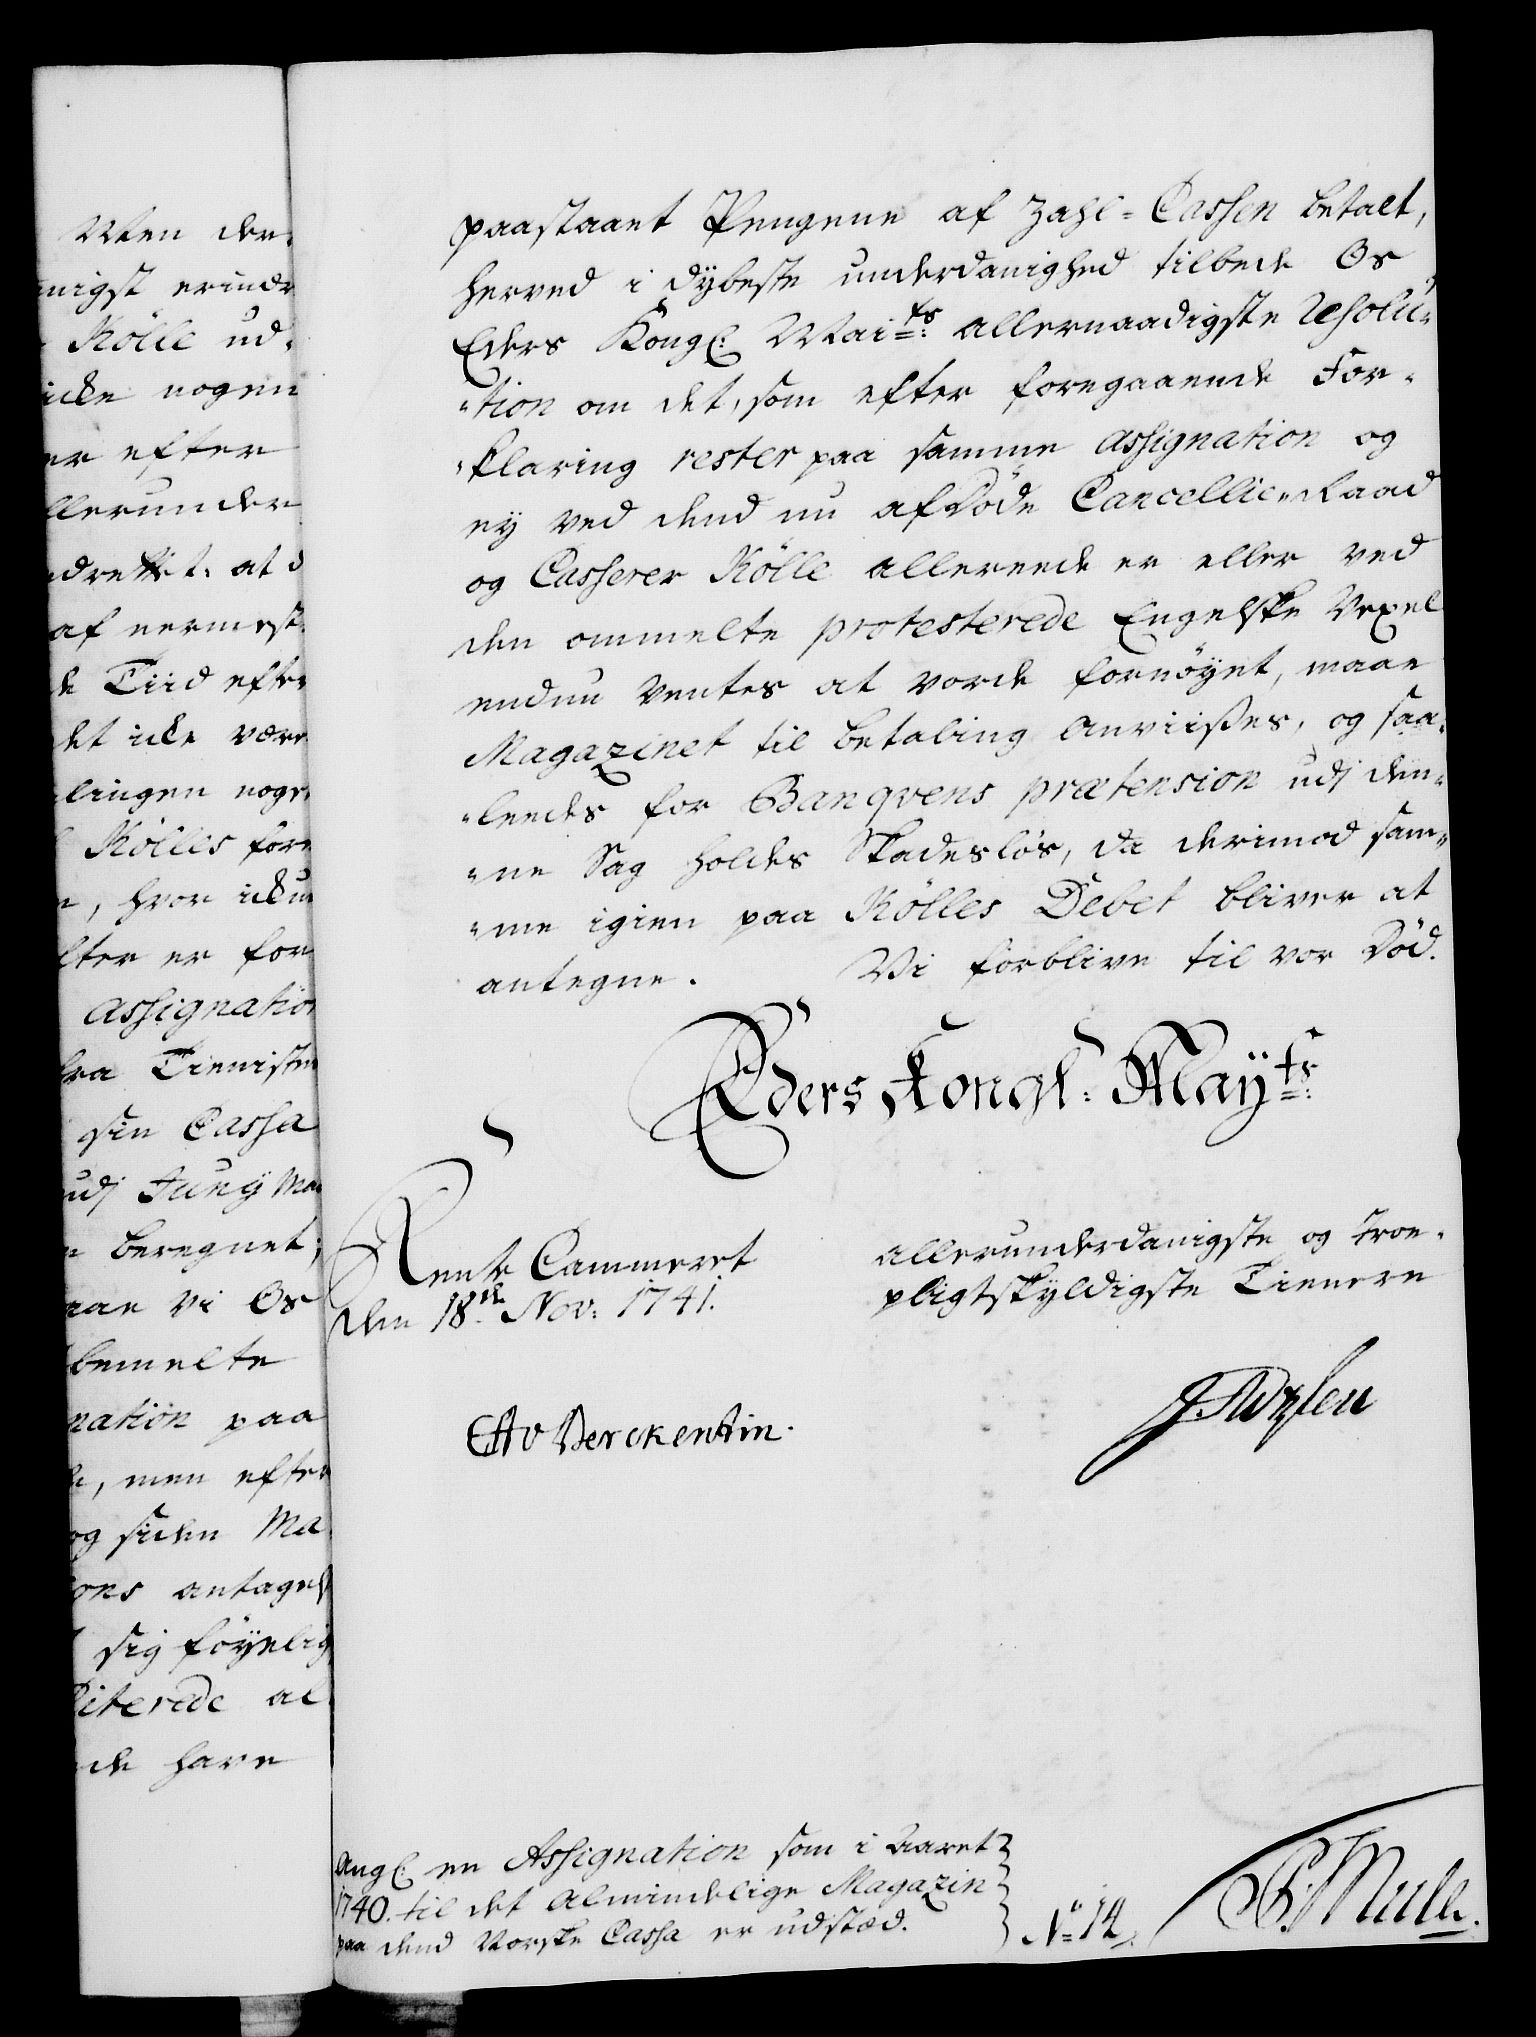 Men der
nigst erindr
Kölle ud-
icke nogen
er efter
llerunder
at d
af nermest
de Tiid efter
det icke være
lingen noge
Kölles for
, hvor icku
lter er for
assignation
fra Tienisten
sin Cassa
udj Junij Ma
beregnet;
vi Os
bemelte
nation paa
, men efter
og siden Ma
ons antages
sig föyelig
diterede al
de have
paastaaet Pengene af Zahl=Cassen betalt,
herved i dybeste underdanighed tilbede Os
Eders Kongl: Mai:ts allernaadigste Resolu-
-tion om det, som efter foregaaende For-
-klaring rester paa samme assignation og
ey ved dend nu afdöde Cancellie-Raad
og Casserer Kölle allereede er eller ved
den ommelte protesterede Engelske Vexel
endnu ventes at vorde fornöyet, maae
Magazinet til betaling anviises, og saa-
-leedes for Banqvens prætension udj den-
-ne Sag holdes Skadeslös, da derimod sam-
-me igien paa Kölles Debet bliver at
antegne. Vi forblive til vor Död.
Eders Kongl: May:ts
Rente Cammeret
den 18de Nov: 1741.
allerunderdanigste og Troe-
pligtskyldigste Tienere
CAv Berckentin.
Angl: en Assignation som i Aaret
1740. til det Almindelige Magazin
paa dend Norske Cassa er udstæd.
No 14